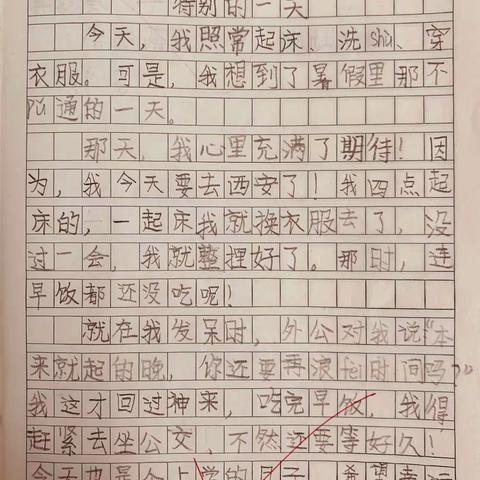 特别的一天
今天，我照常起床、洗shù、穿
衣服。可是，我想到了暑假里那不
pǔ通的一天。
那天，我心里充满了期待！因
为，我今天要去西安了！我四点起
床的，一起床我就换衣服去了，没
过一会，我就整理好了。那时，连
早饭都还没吃呢！
就在我发呆时，外公对我说“本
来就起的晚，你还要再浪fèi时间吗？”
我这才回过神来，吃完早饭，我得
赶紧去坐公交，不然还要等好久！
今天也是个上学的日子，希望幸运